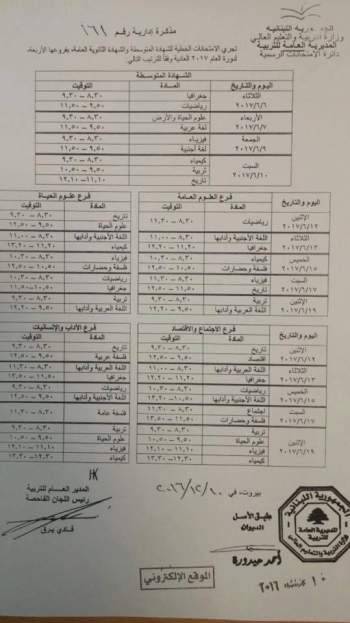 الجمهورية اللبنانية
وزارة التربية والتعليم العالي
المديرية العامة للتربية
دائرة الامتحانات الرسمية
مذكرة ادارية رقم ١٦١
تجري الامتحانات الخطية للشهادة المتوسطة والشهادة الثانوية العامة، بفروعها الأربعة،
لدورة العام ٢٠١٧ العادية وفقاً للترتيب التالي:
الشهادة المتوسطة
اليوم والتاريخ المادة التوقيت
الثلاثاء ٢٠١٧/٦/٦ جغرافيا ٨,٣٠ – ٩,٣٠
رياضيات ٩,٥٠ – ١١,٥٠
الأربعاء ٢٠١٧/٦/٧ علوم الحياة والأرض ٨,٣٠ – ٩,٣٠
لغة عربية ٩,٥٠ – ١١,٥٠
الجمعة ٢٠١٧/٦/٩ فيزياء ٨,٣٠ – ٩,٣٠
لغة أجنبية ٩,٥٠ – ١١,٥٠
السبت ٢٠١٧/٦/١٠ كيمياء ٨,٣٠ – ٩,٣٠
تربية ٩,٥٠ – ١٠,٥٠
تاريخ ١١,١٠ – ١٢,١٠
اليوم والتاريخ
فرع العلوم العامة
المادة التوقيت
الإثنين ٢٠١٧/٦/١٢ رياضيات
الثلاثاء ٢٠١٧/٦/١٣ اللغة الأجنبية وآدابها ٨,٣٠ – ١١,٠٠
جغرافيا ١١,٢٠ – ١٢,٢٠
الخميس ٢٠١٧/٦/١٥ كيمياء
فلسفة وحضارات
السبت ٢٠١٧/٦/١٧ فيزياء
تاريخ
الإثنين ٢٠١٧/٦/١٩ تربية
اللغة العربية وآدابها
فرع علوم الحياة
المادة التوقيت
تاريخ ٨,٣٠ – ٩,٣٠
علوم الحياة ٩,٥٠ – ١٢,٥٠
اللغة الأجنبية وآدابها ٨,٣٠ – ١١,٠٠
كيمياء ١١,٢٠ – ١٣,٢٠
فيزياء ٨,٣٠ – ١٠,٣٠
فلسفة وحضارات ١٠,٥٠ – ١٢,٥٠
رياضيات ٨,٣٠ – ١٠,٣٠
جغرافيا ١٠,٥٠ – ١١,٥٠
تربية ٨,٣٠ – ٩,٣٠
اللغة العربية وآدابها
اليوم والتاريخ
فرع الاجتماع والاقتصاد
المادة التوقيت
الإثنين ٢٠١٧/٦/١٢ تاريخ ٨,٣٠ – ٩,٣٠
اقتصاد
الثلاثاء ٢٠١٧/٦/١٣ اللغة العربية وآدابها ٨,٣٠ – ١١,٠٠
جغرافيا ١١,٢٠ – ١٢,٢٠
الخميس ٢٠١٧/٦/١٥ رياضيات
اللغة الأجنبية وآدابها
السبت ٢٠١٧/٦/١٧ اجتماع
فلسفة وحضارات
الإثنين ٢٠١٧/٦/١٩ تربية ٨,٣٠ – ٩,٣٠
علوم الحياة ٩,٥٠ – ١٠,٥٠
فيزياء ١١,١٠ – ١٢,١٠
كيمياء ١٢,٣٠ – ١٣,٣٠
فرع الآداب والإنسانيات
المادة التوقيت
تاريخ
فلسفة عربية
اللغة العربية وآدابها
جغرافيا
رياضيات
اللغة الأجنبية وآدابها
فلسفة عامة ٨,٣٠ – ١١,٣٠
تربية ٨,٣٠ – ٩,٣٠
علوم الحياة ٩,٥٠ – ١٠,٥٠
فيزياء ١١,١٠ – ١٢,١٠
كيمياء ١٢,٣٠ – ١٣,٣٠
بيروت في ٢٠١٦/١٢/١٠
المدير العام للتربية
رئيس اللجان الفاحصة
فادي يرق
طبق الأصل
الديوان
أحمد حيدورة
الجمهورية اللبنانية
المديرية العامة للتربية
وزارة التربية والتعليم العالي
الموقع الإلكتروني